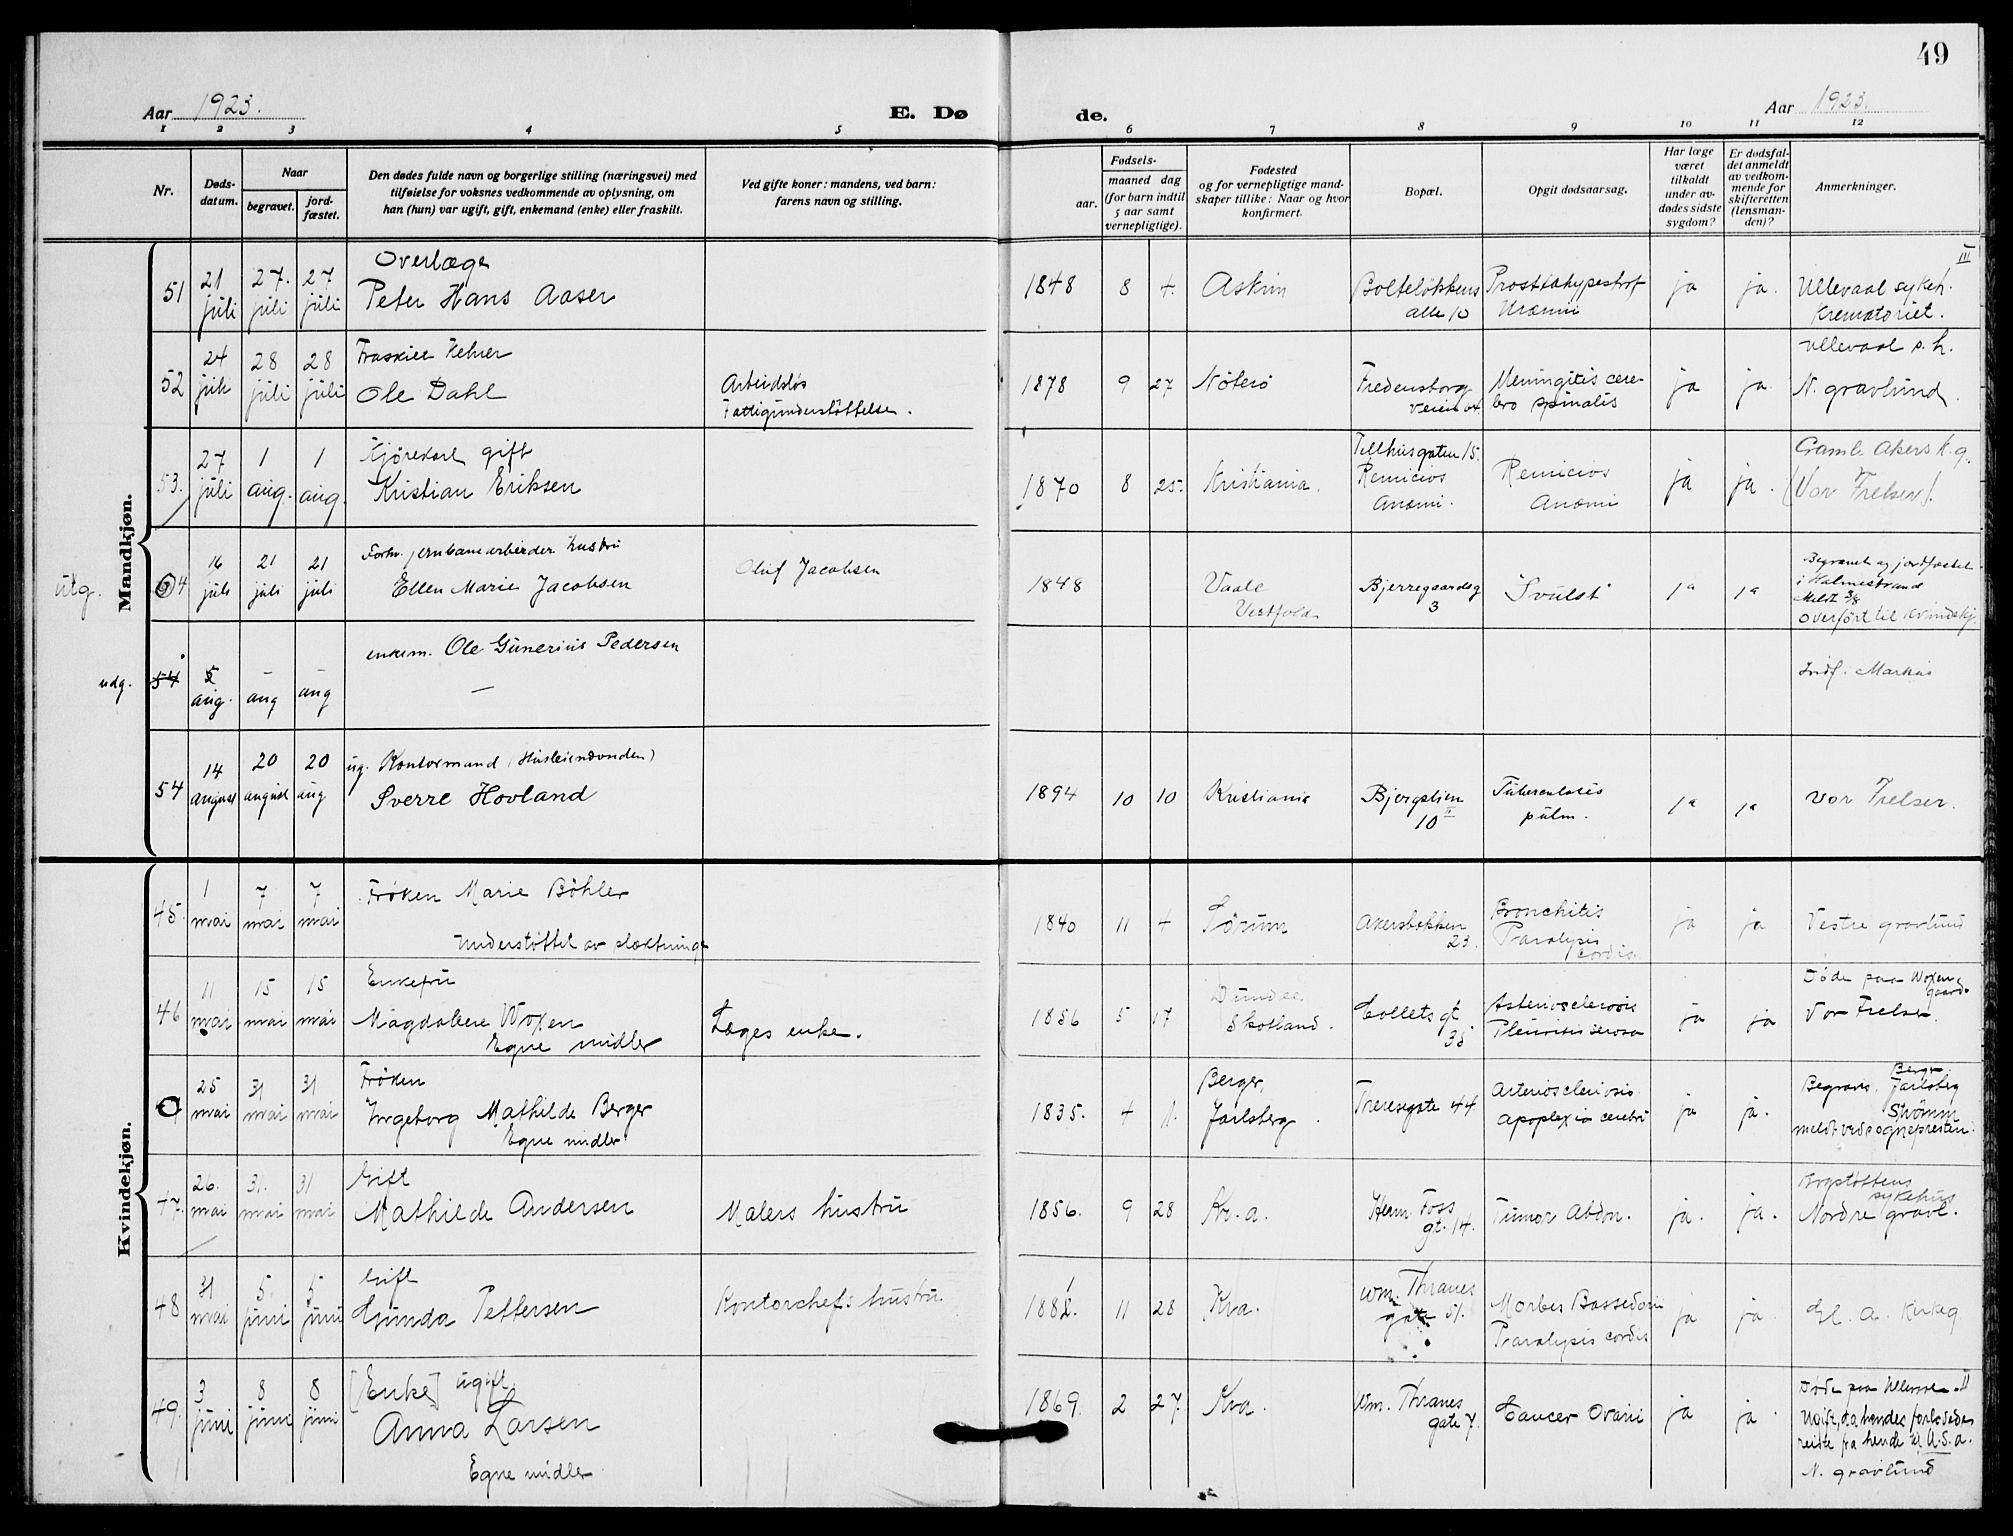 49
Aar 1923.
E. Dø
de.
Aar 1923.
1 2 3 4 5 6 7 8 9 10 11 12
Nr.
Døds-
datum.
Naar
begravet.
jord-
fæstet.
Den dødes fulde navn og borgerlige stilling (næringsvei) med
tilføielse for voksnes vedkommende av oplysning, om
han (hun) var ugift, gift, enkemand (enke) eller fraskilt.
Ved gifte koner: mandens, ved barn:
farens navn og stilling.
Fødsels-
aar.
maaned dag
(for barn indtil
5 aar samt
vernepligtige).
Fødested
og for vernepligtige mand-
skaper tillike: Naar og hvor
konfirmert.
Bopæl.
Opgit dødsaarsag.
Har læge
været
tilkaldt
under av-
dødes sidste
sygdom?
Er dødsfal-
det anmeldt
av vedkom-
mende for
skifteretten
(lensman-
den)?
Anmerkninger.
Mandkjøn.
51
21
juli
27.
juli
27
juli
Overlæge
Peter Hans Aaser
1848
8
4.
Askim
Bolteløkkens
alle 10
Uræmi
ja
ja.
III
Ullevaal sykeh.
Krematoriet.
52
24
juli
28
juli
28
juli
Ole Dahl
Arbeidsløs
Fattigunderstøttelse.
1878
9
27
Nøterø
Fredensborg
Meningitis cere-
bro spinalis
ja
ja
Ullevaal s.h.
N. gravlund.
53.
27
juli
1
aug.
1
aug.
Kjørekarl gift
Kristian Eriksen
1870
8
25.
Kristiania.
15.
Anæmi.
Anæmi
ja
ja.
Gamle Akers k.g.
(Vor Frelser).
utg.
16
juli
21
juli
21
juli
Forhv. jernbanearbeider hustru
Ellen Marie Jacobsen
Oluf Jacobsen
1848
Vaale
Vestfold
Bjerregaardsg
3
"Svulst"
ja
ja
Begravet og jordfæstet
i Holmestrand
Meldt 3/8
Overført til kvindekj.
udg.
54
5
aug.
–
aug
–
aug
enkem. Ole Gunerius Pedersen
—
Indf. Markus
54
14
august
20
august
20
aug
ug. Kontormand (Husleienævnden)
Sverre Hovland
1894
10
10
Kristiania
Bjergstien
10 II
Tuberculosis
pulm.
ja
ja
Vor Frelser.
Kvindekjøn.
45.
1
mai
7
mai
7
mai
Frøken Marie Bøhler
Understøttet av slektninge
1840
11
4
Sørum
Akersbakken
23.
Bronchitis
Paralysis
cordis.
ja
ja
Vestre gravlund
46
11
mai
15
mai
15
mai
Enkefru
Magdalene Woxen
Egne midler
Læges enke.
1856
5
17
Dundee
Skotland.
Collets gt
35
Arteriosclerosis
Pleuritis serosa
ja
ja
Døde paa Woxen
gaard.
Vor Frelser.
25
mai
31
mai
31
mai
Frøken
Ingeborg Mathilde Berger
Egne midler
1835.
4
1.
Berger,
Jarlsberg.
Theresegate 44
Arteriosclerosis.
Apoplexia cerebri
ja
ja.
Begraves. Berger
Jarlsberg
Strømm
meldt ved sognepresten.
47.
26.
mai
31.
mai
31
mai
Gift
Mathilde Andersen
Malers hustru
1856.
9
28
Kr.a.
Herm. Foss
gt. 14.
Tumor Abdom.
ja.
ja.
sykehus
Nordre gravl.
48
31
mai
5.
juni
5
juni
Gift
Gunda Pettersen
Kontorchefs hustru.
1881.
11
28
Kra.
Wm. Thranes
gate 51.
Morbus Bassedowii
Paralysis cordis
ja
ja.
Gl. A. Kirkeg
49.
3
juni
8
juni
8
juni
[Enke] ugift.
Anna Larsen
Egne midler
1869.
2
27.
Kra.
Wm. Thranes
gate 7.
Cancer Ovarii
ja
ja.
Døde paa Ullevaal. II
Ugift, da hendes forlovede
reiste fra hende til U.S.A.
N. gravlund